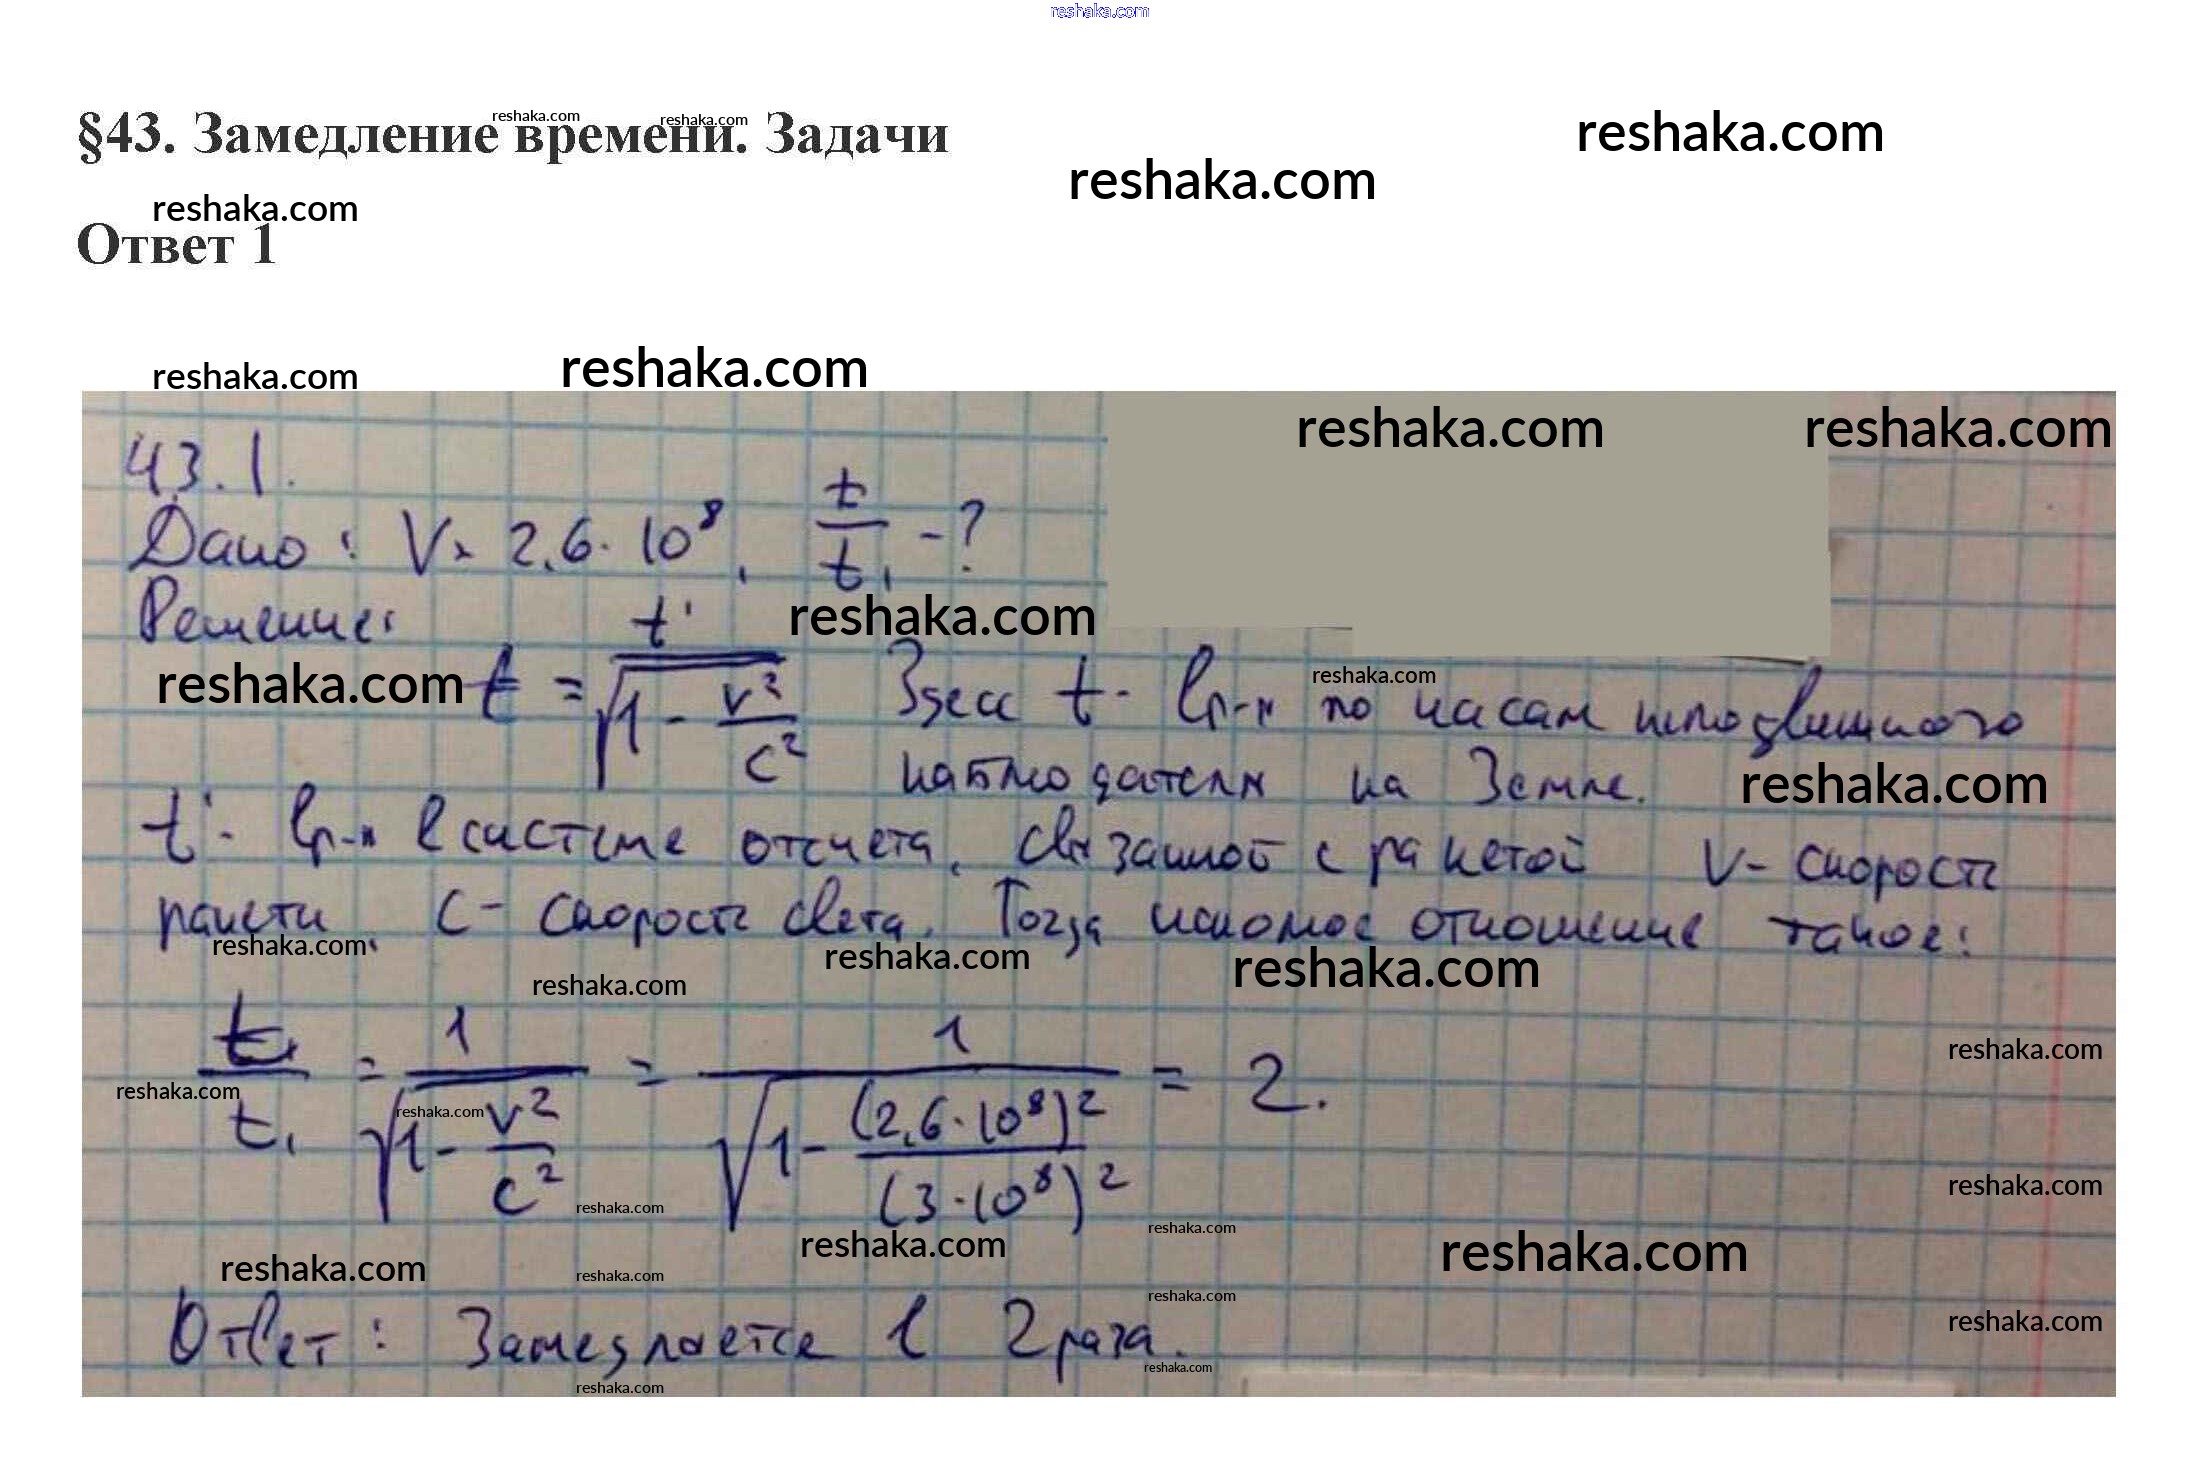 reshaka.com
§43. Замедление времени. Задачи
reshaka.com
reshaka.com
reshaka.com
reshaka.com
reshaka.com
Ответ 1
reshaka.com
reshaka.com
reshaka.com
reshaka.com
reshaka.com
43.1.
Дано: V = 2,6 · 10⁸, t/t₁ - ?
Решение:
reshaka.com
reshaka.com
reshaka.com
t = t'/√(1 - v²/c²) Здесь t - вр-я по часам неподвижного
наблюдателя на Земле.
reshaka.com
t' - вр-я в системе отсчета, связанной с ракетой V - скорость
ракеты, c - скорость света. Тогда искомое отношение такое:
reshaka.com
reshaka.com
reshaka.com
reshaka.com
t/t₁ = 1/√(1 - v²/c²) = 1/√(1 - (2,6·10⁸)²/(3·10⁸)²) = 2.
reshaka.com
reshaka.com
reshaka.com
reshaka.com
reshaka.com
reshaka.com
reshaka.com
reshaka.com
reshaka.com
reshaka.com
reshaka.com
reshaka.com
Ответ: Замедляется в 2 раза.
reshaka.com
reshaka.com
reshaka.com